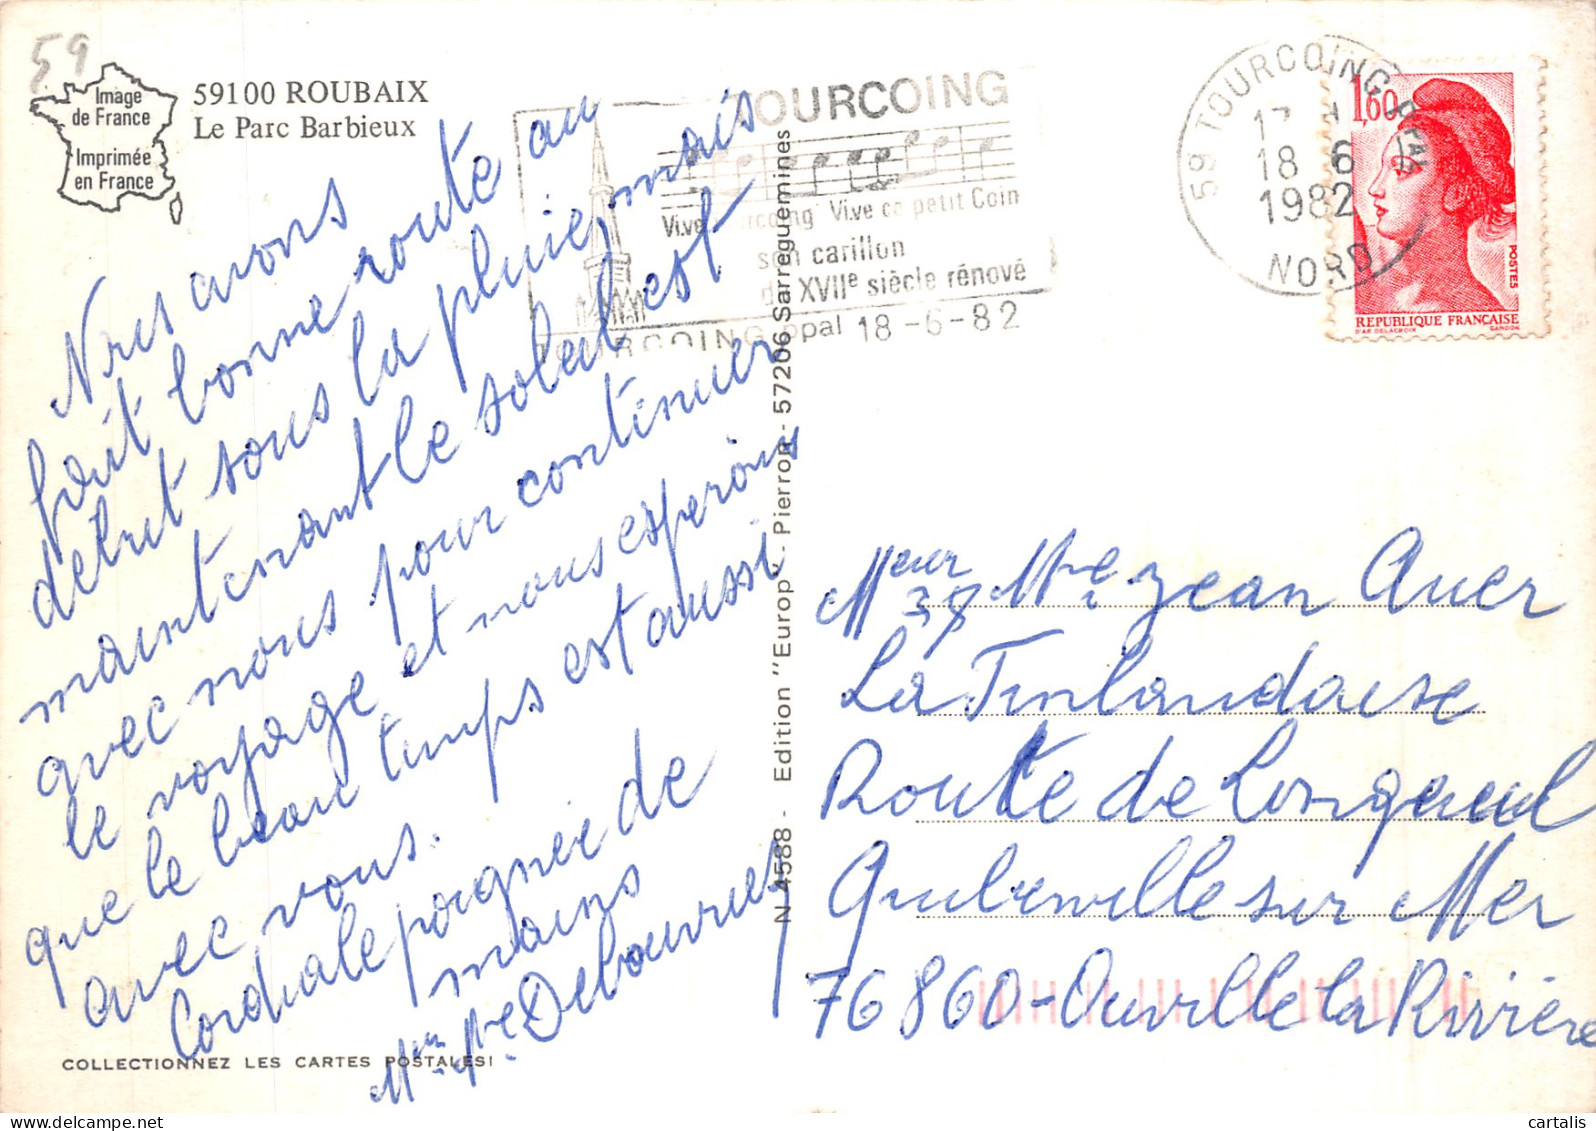 59
Image
de France
Imprimée
en France
59100 ROUBAIX
Le Parc Barbieux
Nous avons
fait bonne route au
debut sous la pluie, mais
maintenant le soleil est
avec nous pour continuer
le voyage et nous esperons
que le beau temps est aussi
avec vous.
Cordiale poignée de
mains
COLLECTIONNEZ LES CARTES POSTALES!
N 4588 - Edition "Europ" - Pierron - 57206 Sarreguemines
TOURCOING
Vive Tourcoing Vive ce petit Coin
son carillon
du XVIIe siècle rénové
TOURCOING ppal 18-6-82
59 TOURCOING PPAL
17
18 6
1982
NORD
1,60
POSTES
REPUBLIQUE FRANÇAISE
D'AP. DELACROIX GANDON
Meur Me Jean Auer
38
La Finlandaise
Route de Longueuil
Quiberville sur Mer
76860 - Ouville la Rivière
cartalis